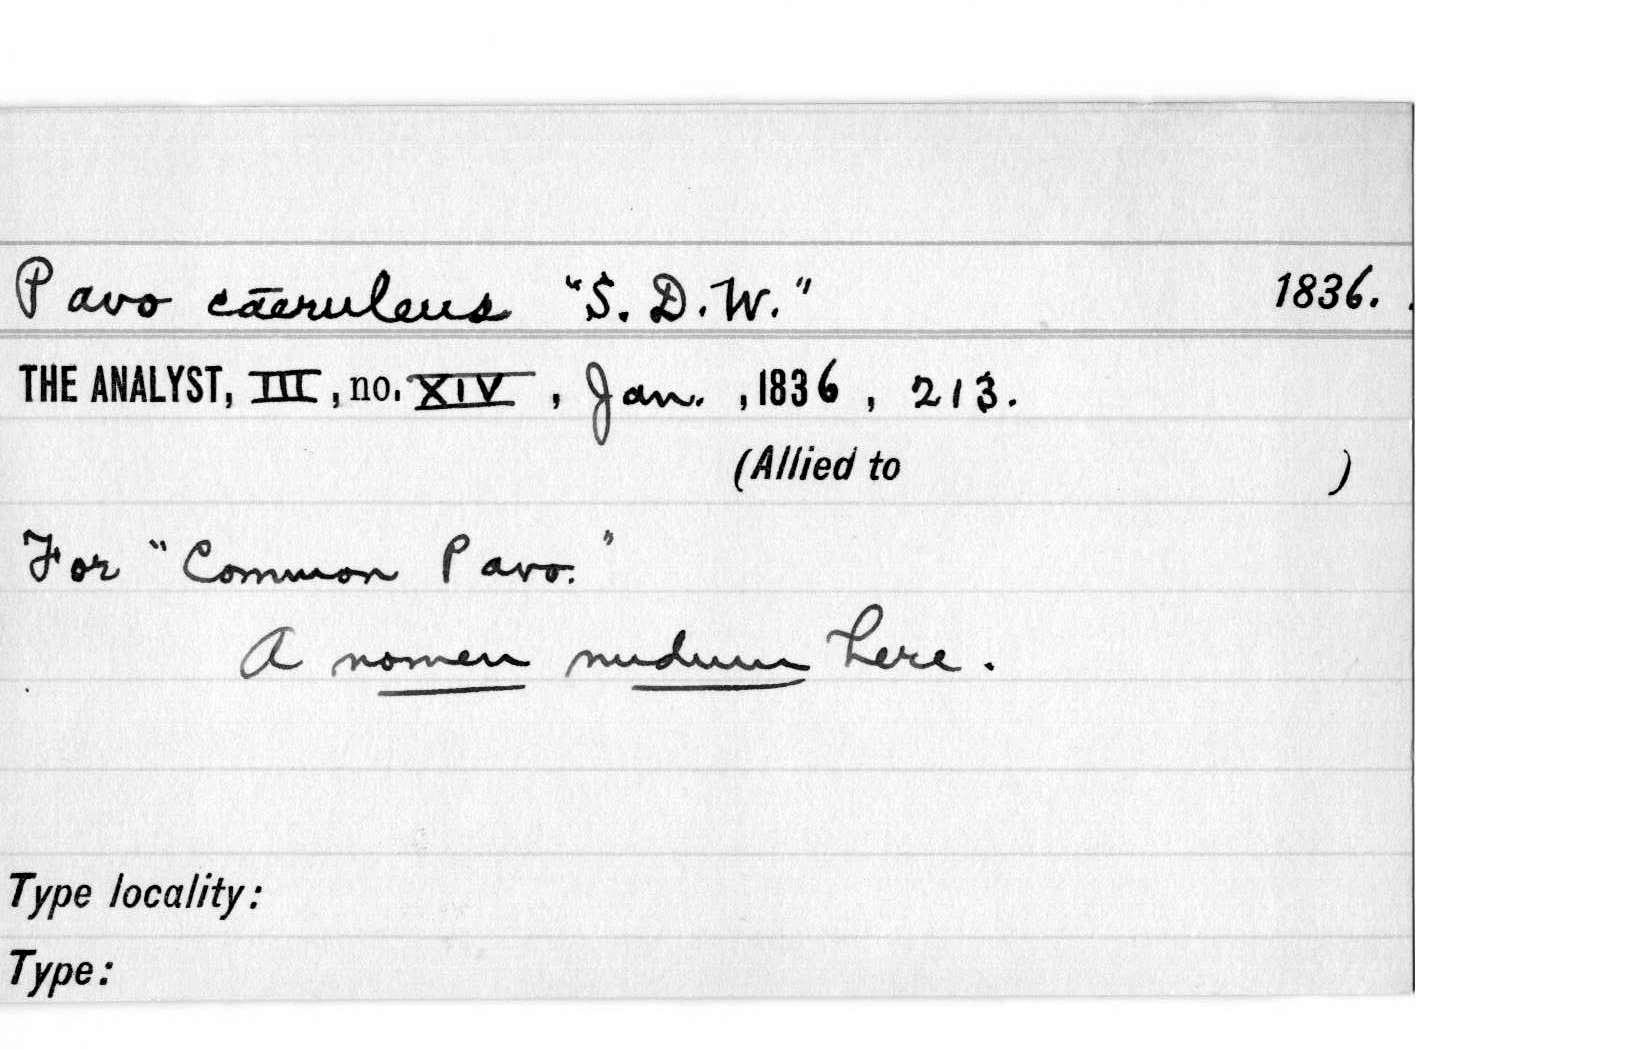 Pavo cāeruleus "S. D. W." 1836.
THE ANALYST, III, no. XIV, Jan., 1836, 213.
(Allied to )
For "Common Pavo."
A nomen nudum here.
Type locality:
Type: